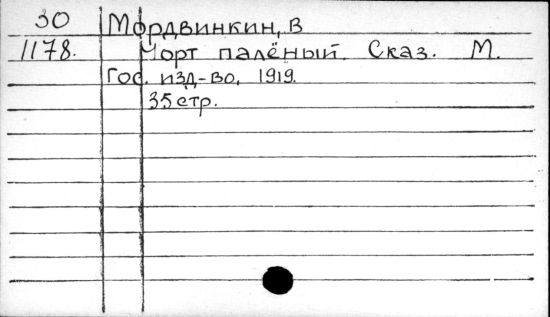 30 Мордвинкин, В
1178. Чорт палёный. Сказ. М.
Гос. изд-во, 1919.
35 стр.